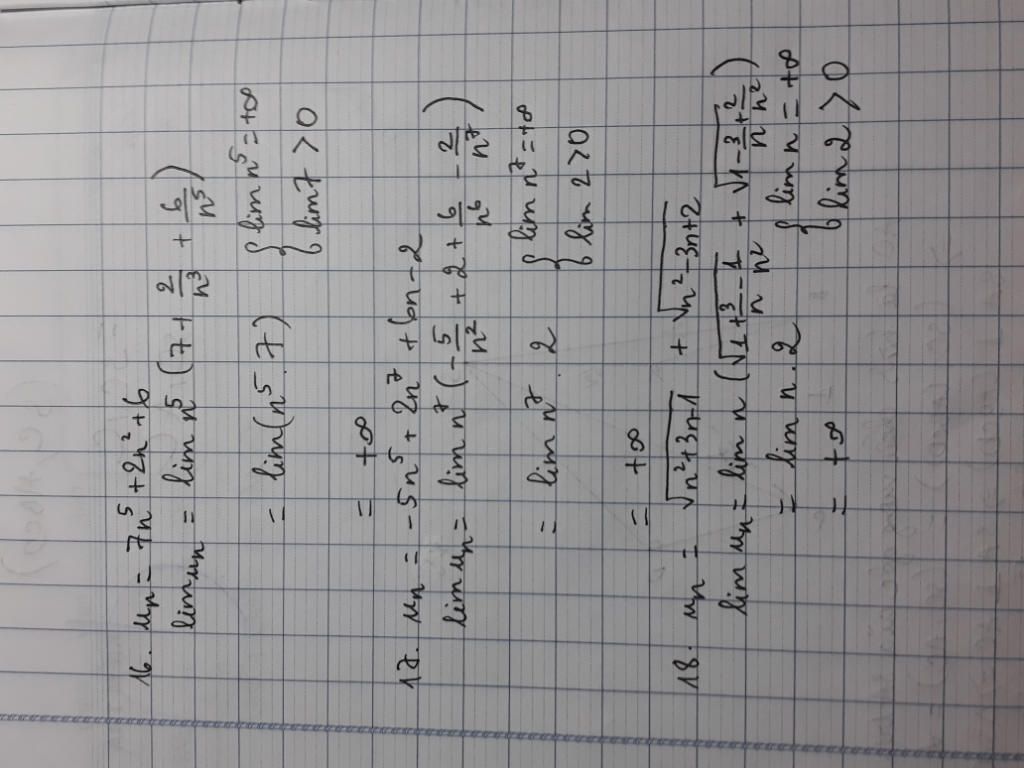 16. uₙ = 7n⁵ + 2n² + 6
lim uₙ = lim n⁵ (7 + 2/n³ + 6/n⁵)
= lim (n⁵ . 7) { lim n⁵ = +∞
{ lim 7 > 0
= +∞
17. uₙ = -5n⁵ + 2n⁷ + 6n - 2
lim uₙ = lim n⁷ (-5/n² + 2 + 6/n⁶ - 2/n⁷)
= lim n⁷ . 2 { lim n⁷ = +∞
{ lim 2 > 0
= +∞
18. uₙ = √(n² + 3n - 1) + √(n² - 3n + 2)
lim uₙ = lim n (√(1 + 3/n - 1/n²) + √(1 - 3/n + 2/n²))
= lim n . 2 { lim n = +∞
= +∞ { lim 2 > 0